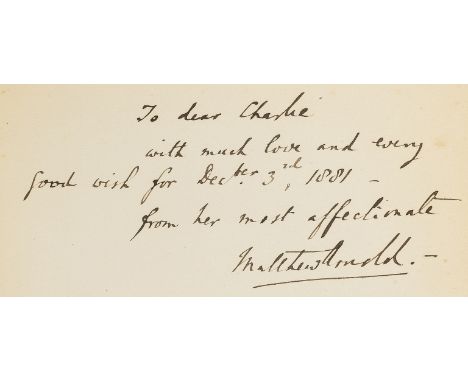 To dear Charlie
with much love and every
good wish for Decber. 3rd, 1881 –
from her most affectionate
Matthew Arnold. –